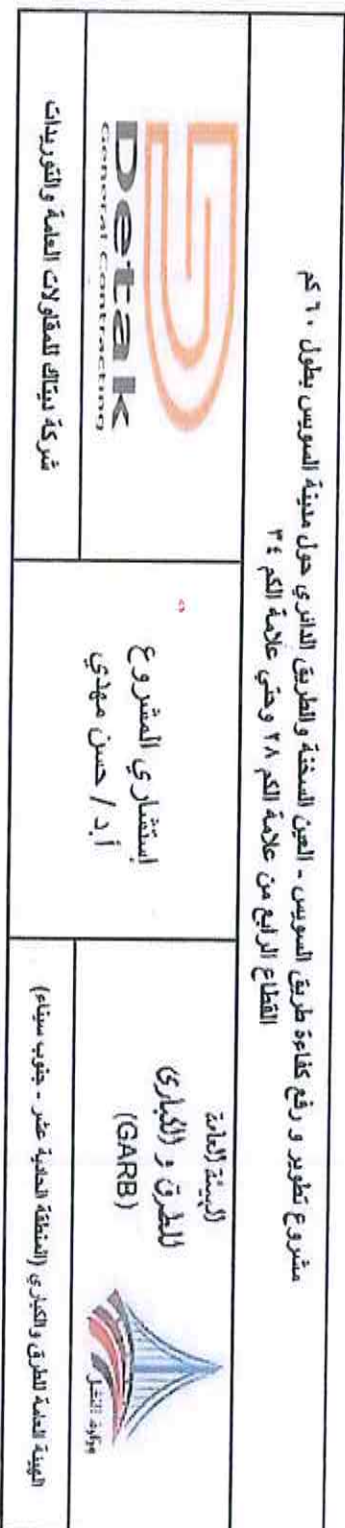 مشروع تطوير و رفع كفاءة طريق السويس - العين السخنة والطريق الدائري حول مدينة السويس بطول ٦٠ كم
القطاع الرابع من علامة الكم ٢٨ وحتي علامة الكم ٣٤
الهيئة العامة
للطرق و الكبارى
(GARB)
وزارة النقل
إستشاري المشروع
أ.د / حسن مهدي
Detak
General Contracting
الهيئة العامة للطرق والكباري (المنطقة الحادية عشر - جنوب سيناء)
شركة ديتاك للمقاولات العامة والتوريدات